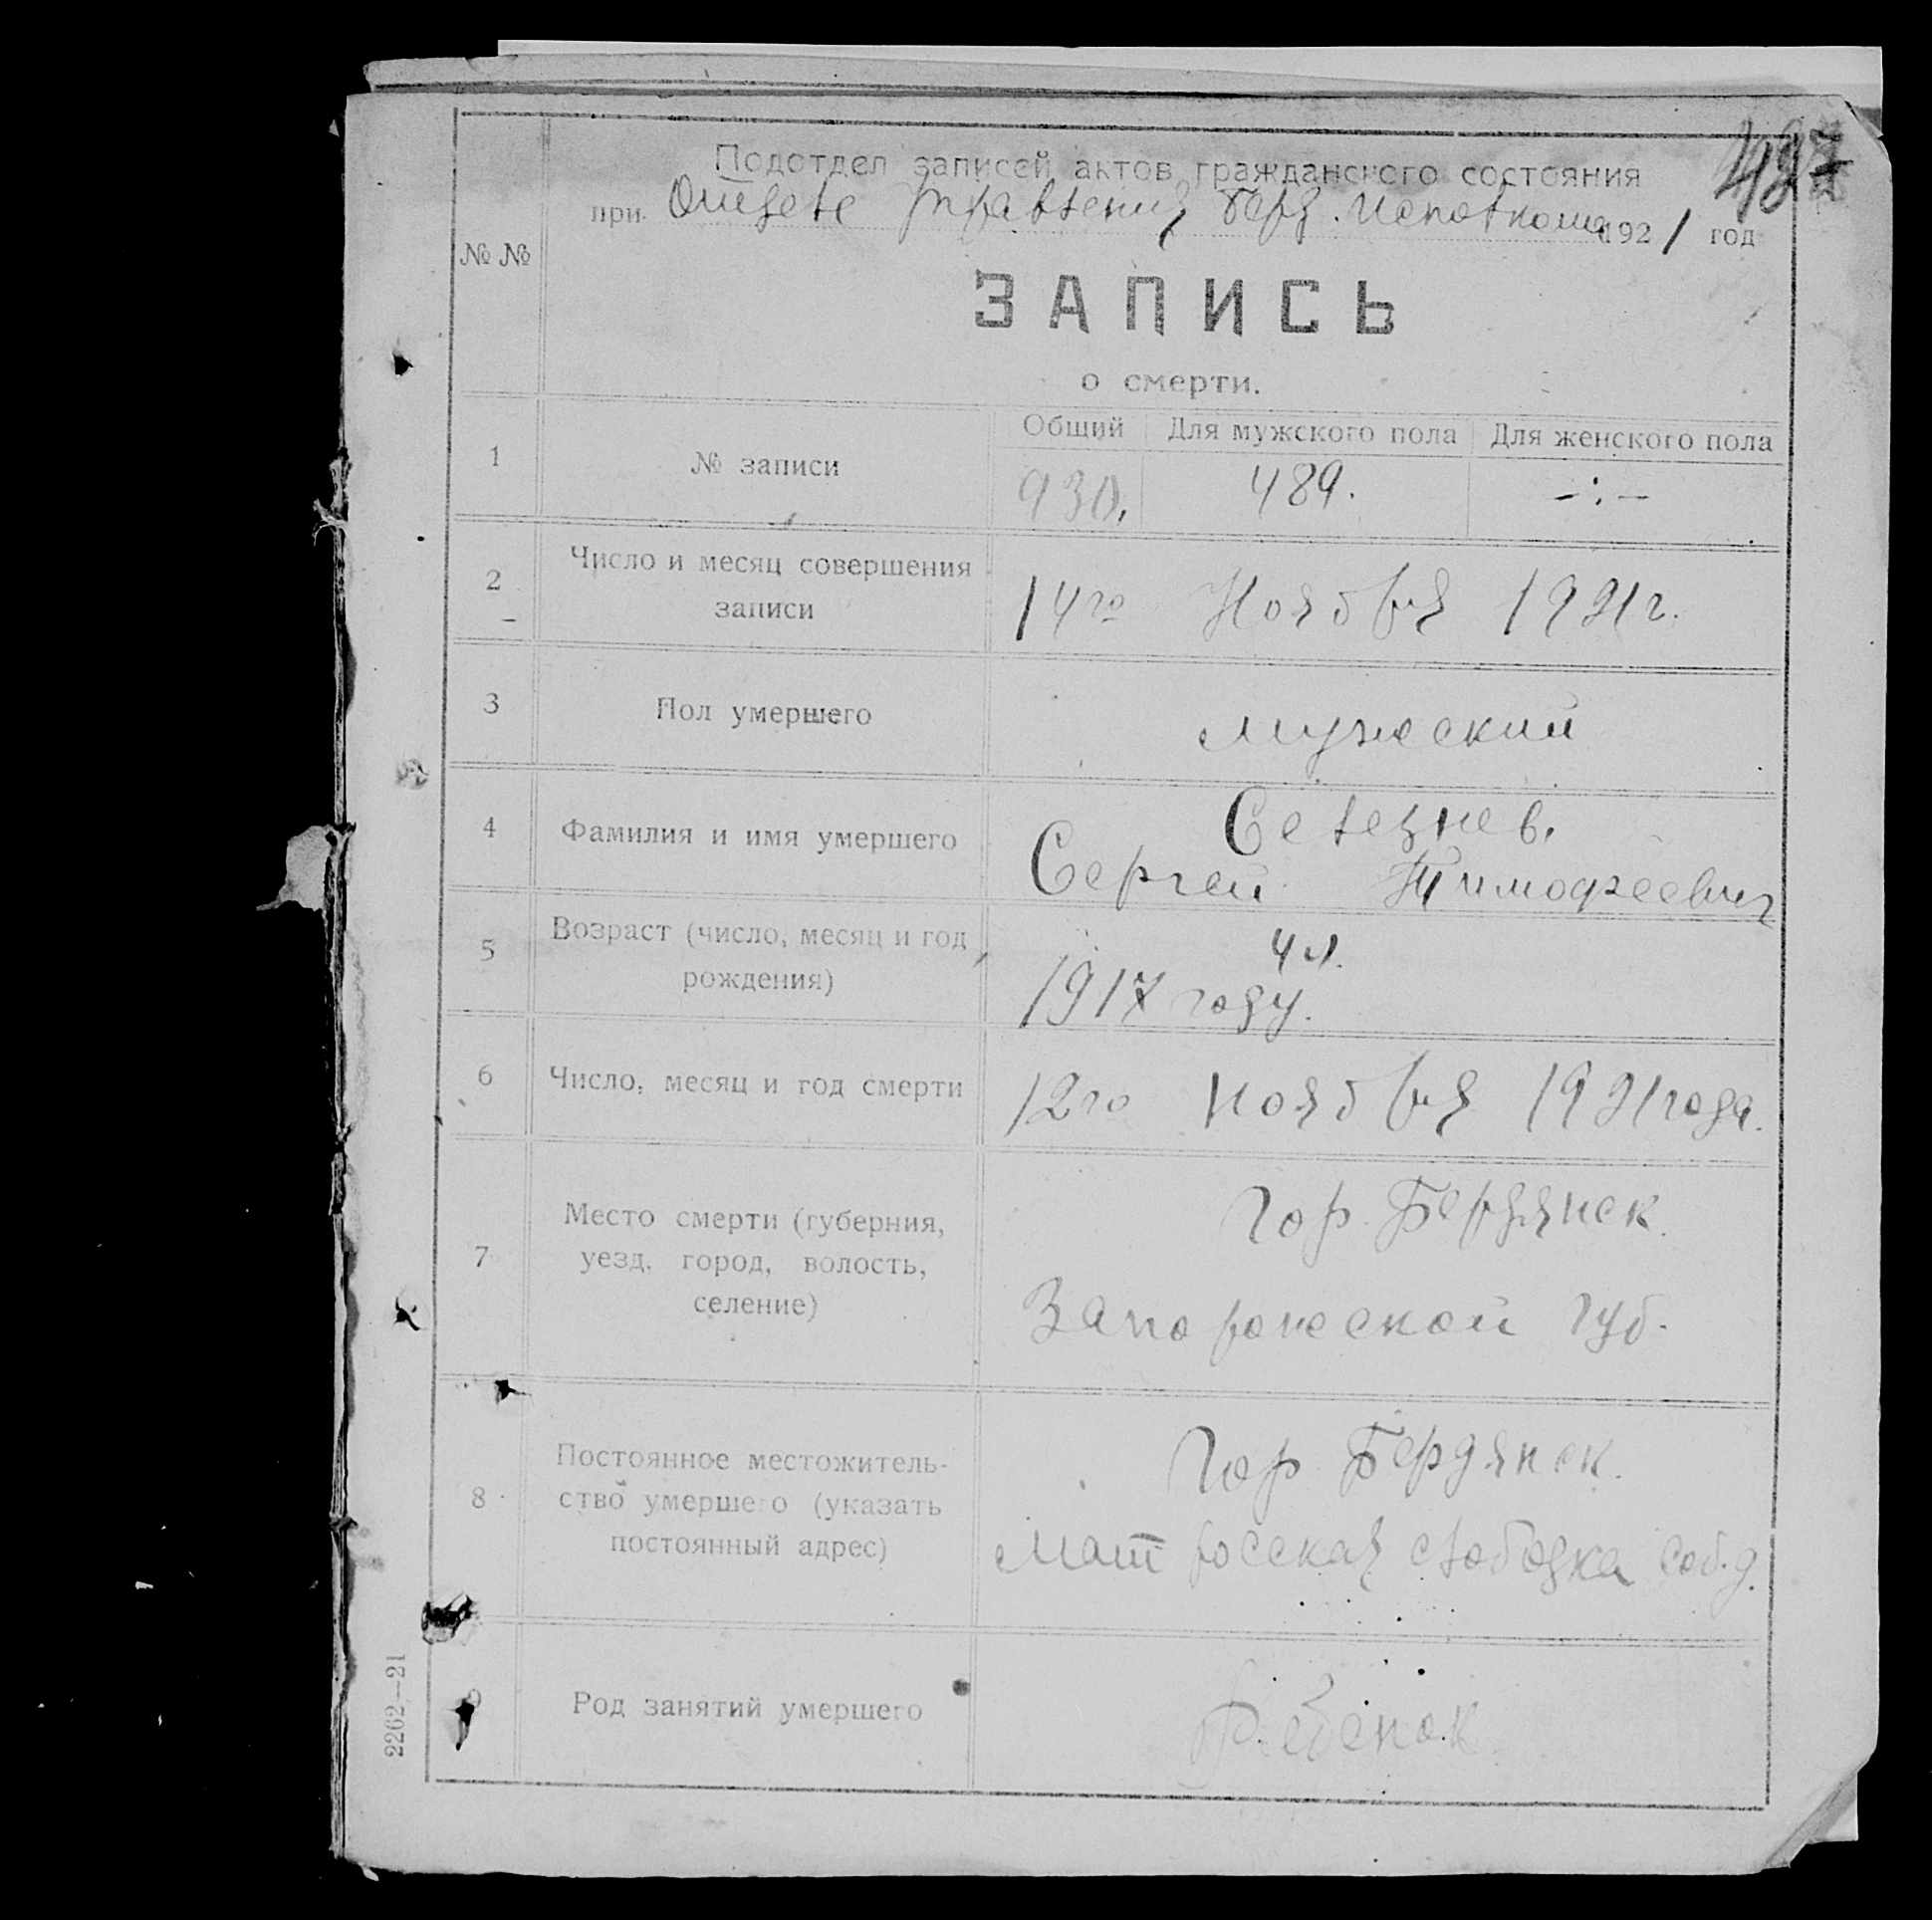 427
Подотдел записей актов гражданского состояния
при Отделе Управления Берд. Исполкома 1921 год
№ №
ЗАПИСЬ
о смерти.
1
№ записи
Общий
Для мужского пола
Для женского пола
930.
489.
-:-
2
Число и месяц совершения
записи
14го Ноября 1921г.
3
Пол умершего
мужеский
4
Фамилия и имя умершего
Селезнев.
Сергей Тимофеевич
5
Возраст (число, месяц и год
рождения)
4 л.
1917 году.
6
Число, месяц и год смерти
12го Ноября 1921 года.
7
Место смерти (губерния,
уезд, город, волость,
селение)
Гор. Бердянск.
Запорожеской губ.
8
Постоянное местожитель-
ство умершего (указать
постоянный адрес)
Гор. Бердянск.
Матросская слободка соб. д.
9
Род занятий умершего
Ребенок
2262—21